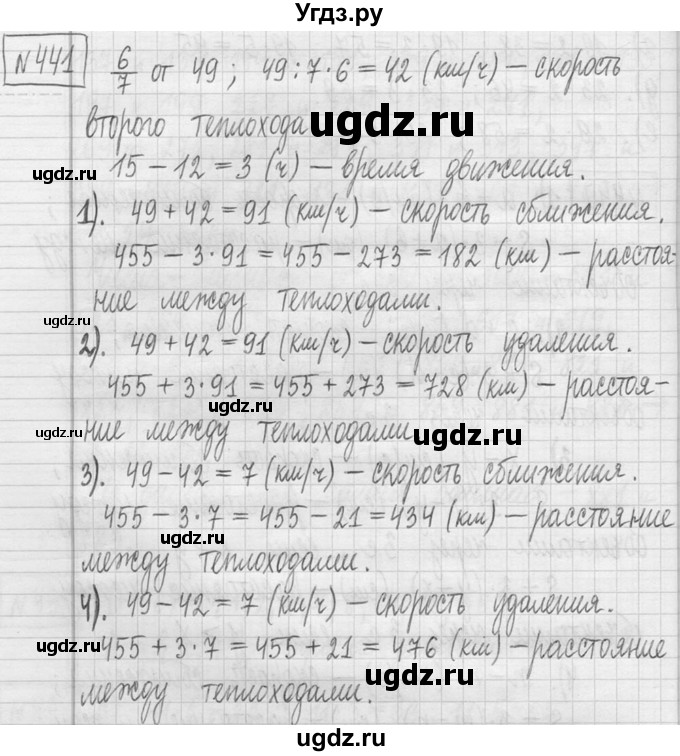 Угдз.ру
№441 6/7 от 49; 49:7·6=42 (км/ч) – скорость
второго теплохода
ugdz.ru
15 – 12 = 3 (ч) – время движения.
ugdz.ru
1). 49+42=91 (км/ч) – скорость сближения.
ugdz.ru
455 – 3·91 = 455 – 273 = 182 (км) – расстоя-
ние между теплоходами.
ugdz.ru
2). 49+42=91 (км/ч) – скорость удаления.
455 + 3·91 = 455 + 273 = 728 (км) – расстоя-
ugdz.ru
ние между теплоходами
ugdz.ru
ugdz.ru
3). 49 – 42 = 7 (км/ч) – скорость сближения.
455 – 3·7 = 455 – 21 = 434 (км) – расстояние
ugdz.ru
между теплоходами.
4). 49 – 42 = 7 (км/ч) – скорость удаления.
455 + 3·7 = 455 + 21 = 476 (км) – расстояние
ugdz.ru
ugdz.ru
между теплоходами.
ugdz.ru